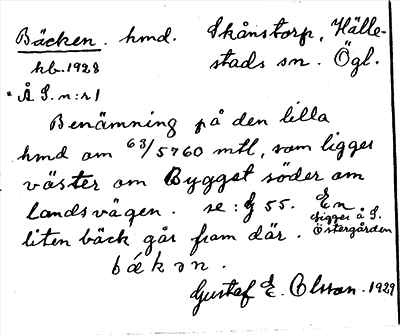 Bäcken. hmd. Skånstorp, Hälle-
hb. 1928 stads sn. Ögl.
Å S. n:r 1
Benämning på den lilla
hmd om 63/5760 mtl, som ligger
väster om Bygget söder om
landsvägen. se: G 55. En
ligger å S.
liten bäck går fram där. Östergården
bǽkən.
Gustaf E. Olsson. 1929